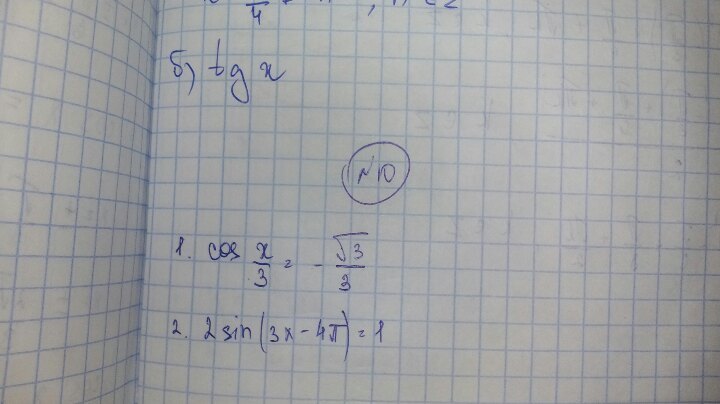 б) tg x
№10
1. cos x/3 = - √3/3
2. 2 sin(3x - 4π) = 1